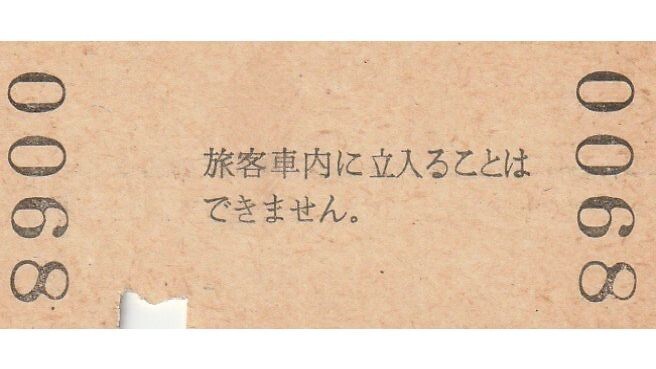 0068
旅客車内に立入ることは
できません。
0068